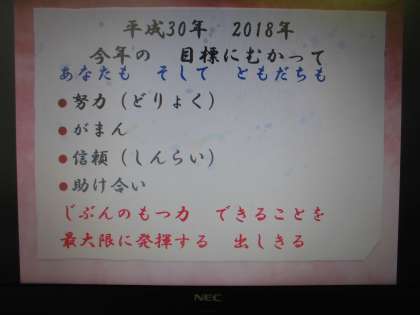 平成30年 2018年
今年の 目標にむかって
あなたも そして ともだちも
●努力（どりょく）
●がまん
●信頼（しんらい）
●助け合い
じぶんのもつ力 できることを
最大限に発揮する 出しきる
NEC